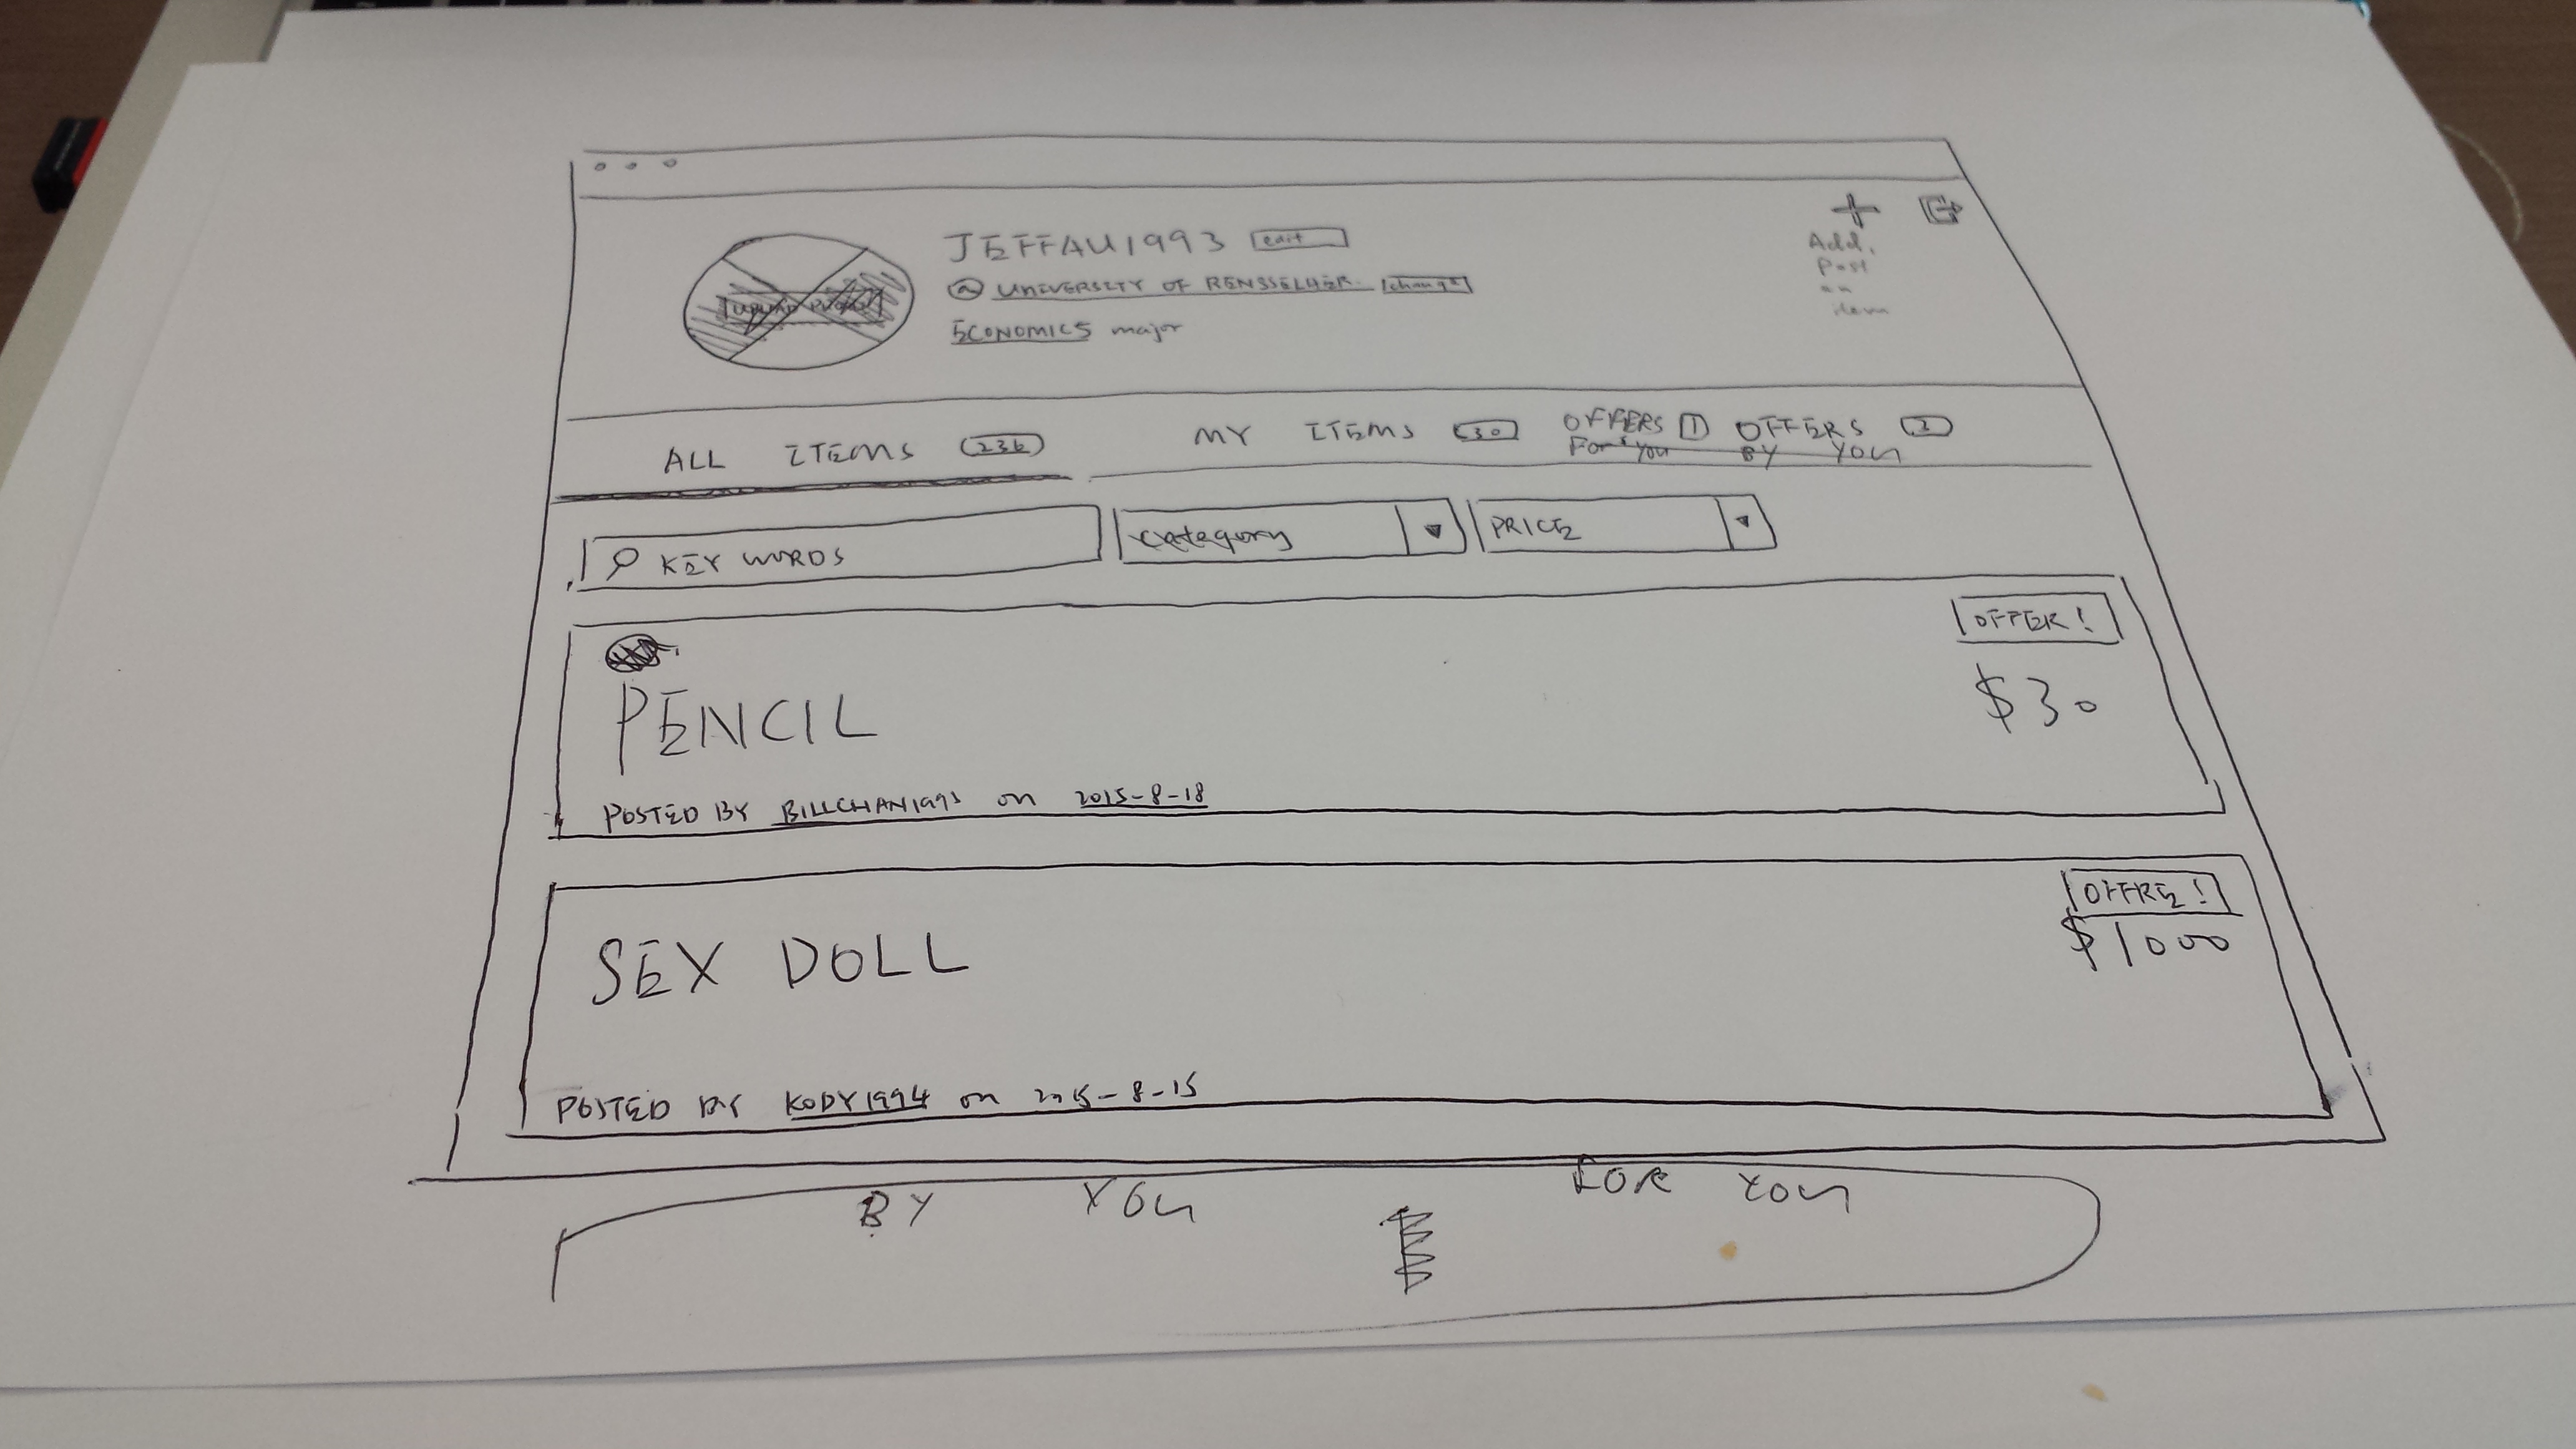 JEFFAU1993 edit
@ UNIVERSITY OF RENSSELAER. change
ECONOMICS major
Add.
Post
an
item
ALL ITEMS 236
MY ITEMS 30
OFFERS 1
For you
OFFERS 2
BY YOU
KEY WORDS
category
PRICE
OFFER!
PENCIL
$30
POSTED BY BILLCHAN1993 on 2015-8-18
OFFRE!
SEX DOLL
$1000
POSTED BY KODY1994 on 2015-8-15
BY YOU
FOR YOU